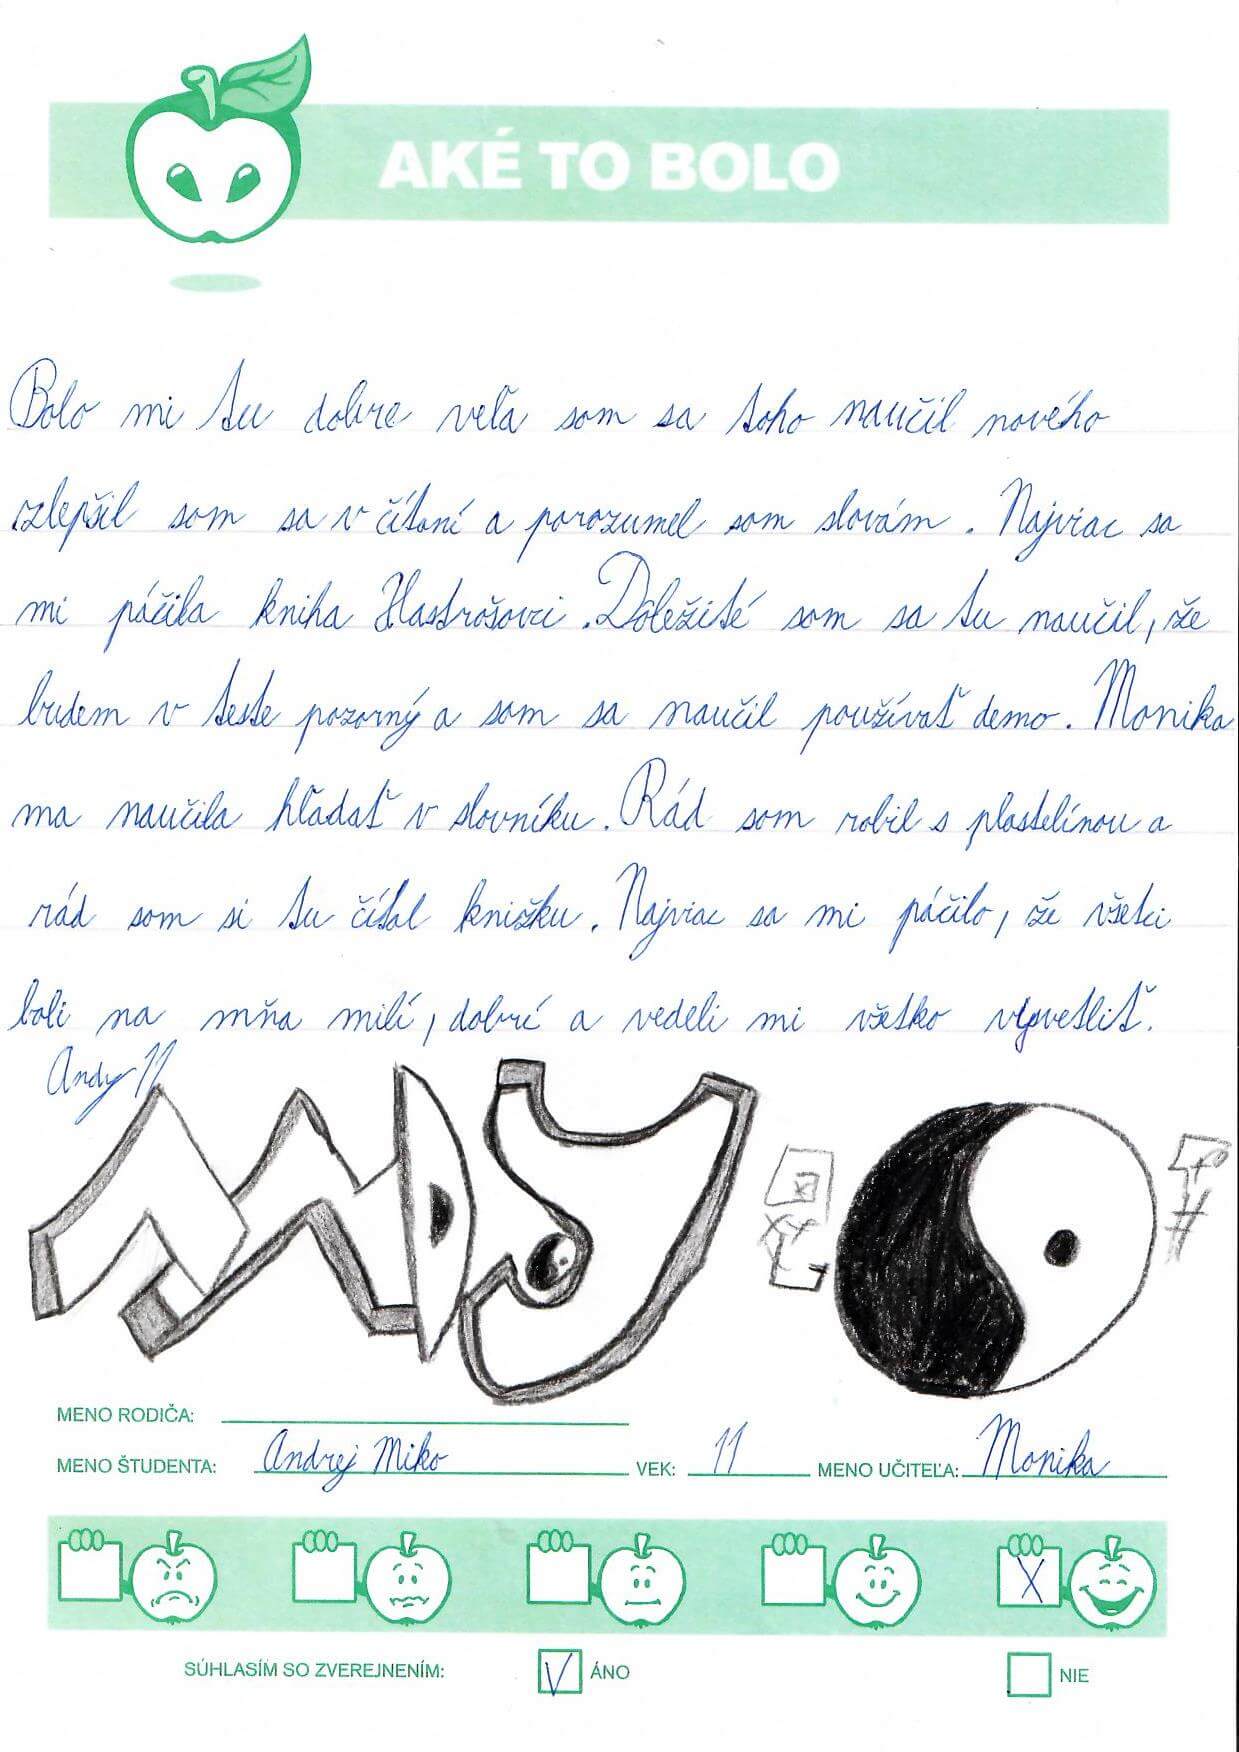 AKÉ TO BOLO
Bolo mi tu dobre veľa som sa toho naučil nového
zlepšil som sa v čítaní a porozumel som slovám. Najviac sa
mi páčila kniha Hastrošovci. Dôležité som sa tu naučil, že
budem v teste pozorný a som sa naučil používať demo. Monika
ma naučila hľadať v slovníku. Rád som robil s plastelínou a
rád som si tu čítal knižku. Najviac sa mi páčilo, že všetci
boli na mňa milí, dobrí a vedeli mi všetko vysvetliť.
Andy 11
ANDY
MENO RODIČA:
MENO ŠTUDENTA: Andrej Miko VEK: 11 MENO UČITEĽA: Monika
X
SÚHLASÍM SO ZVEREJNENÍM: V ÁNO NIE